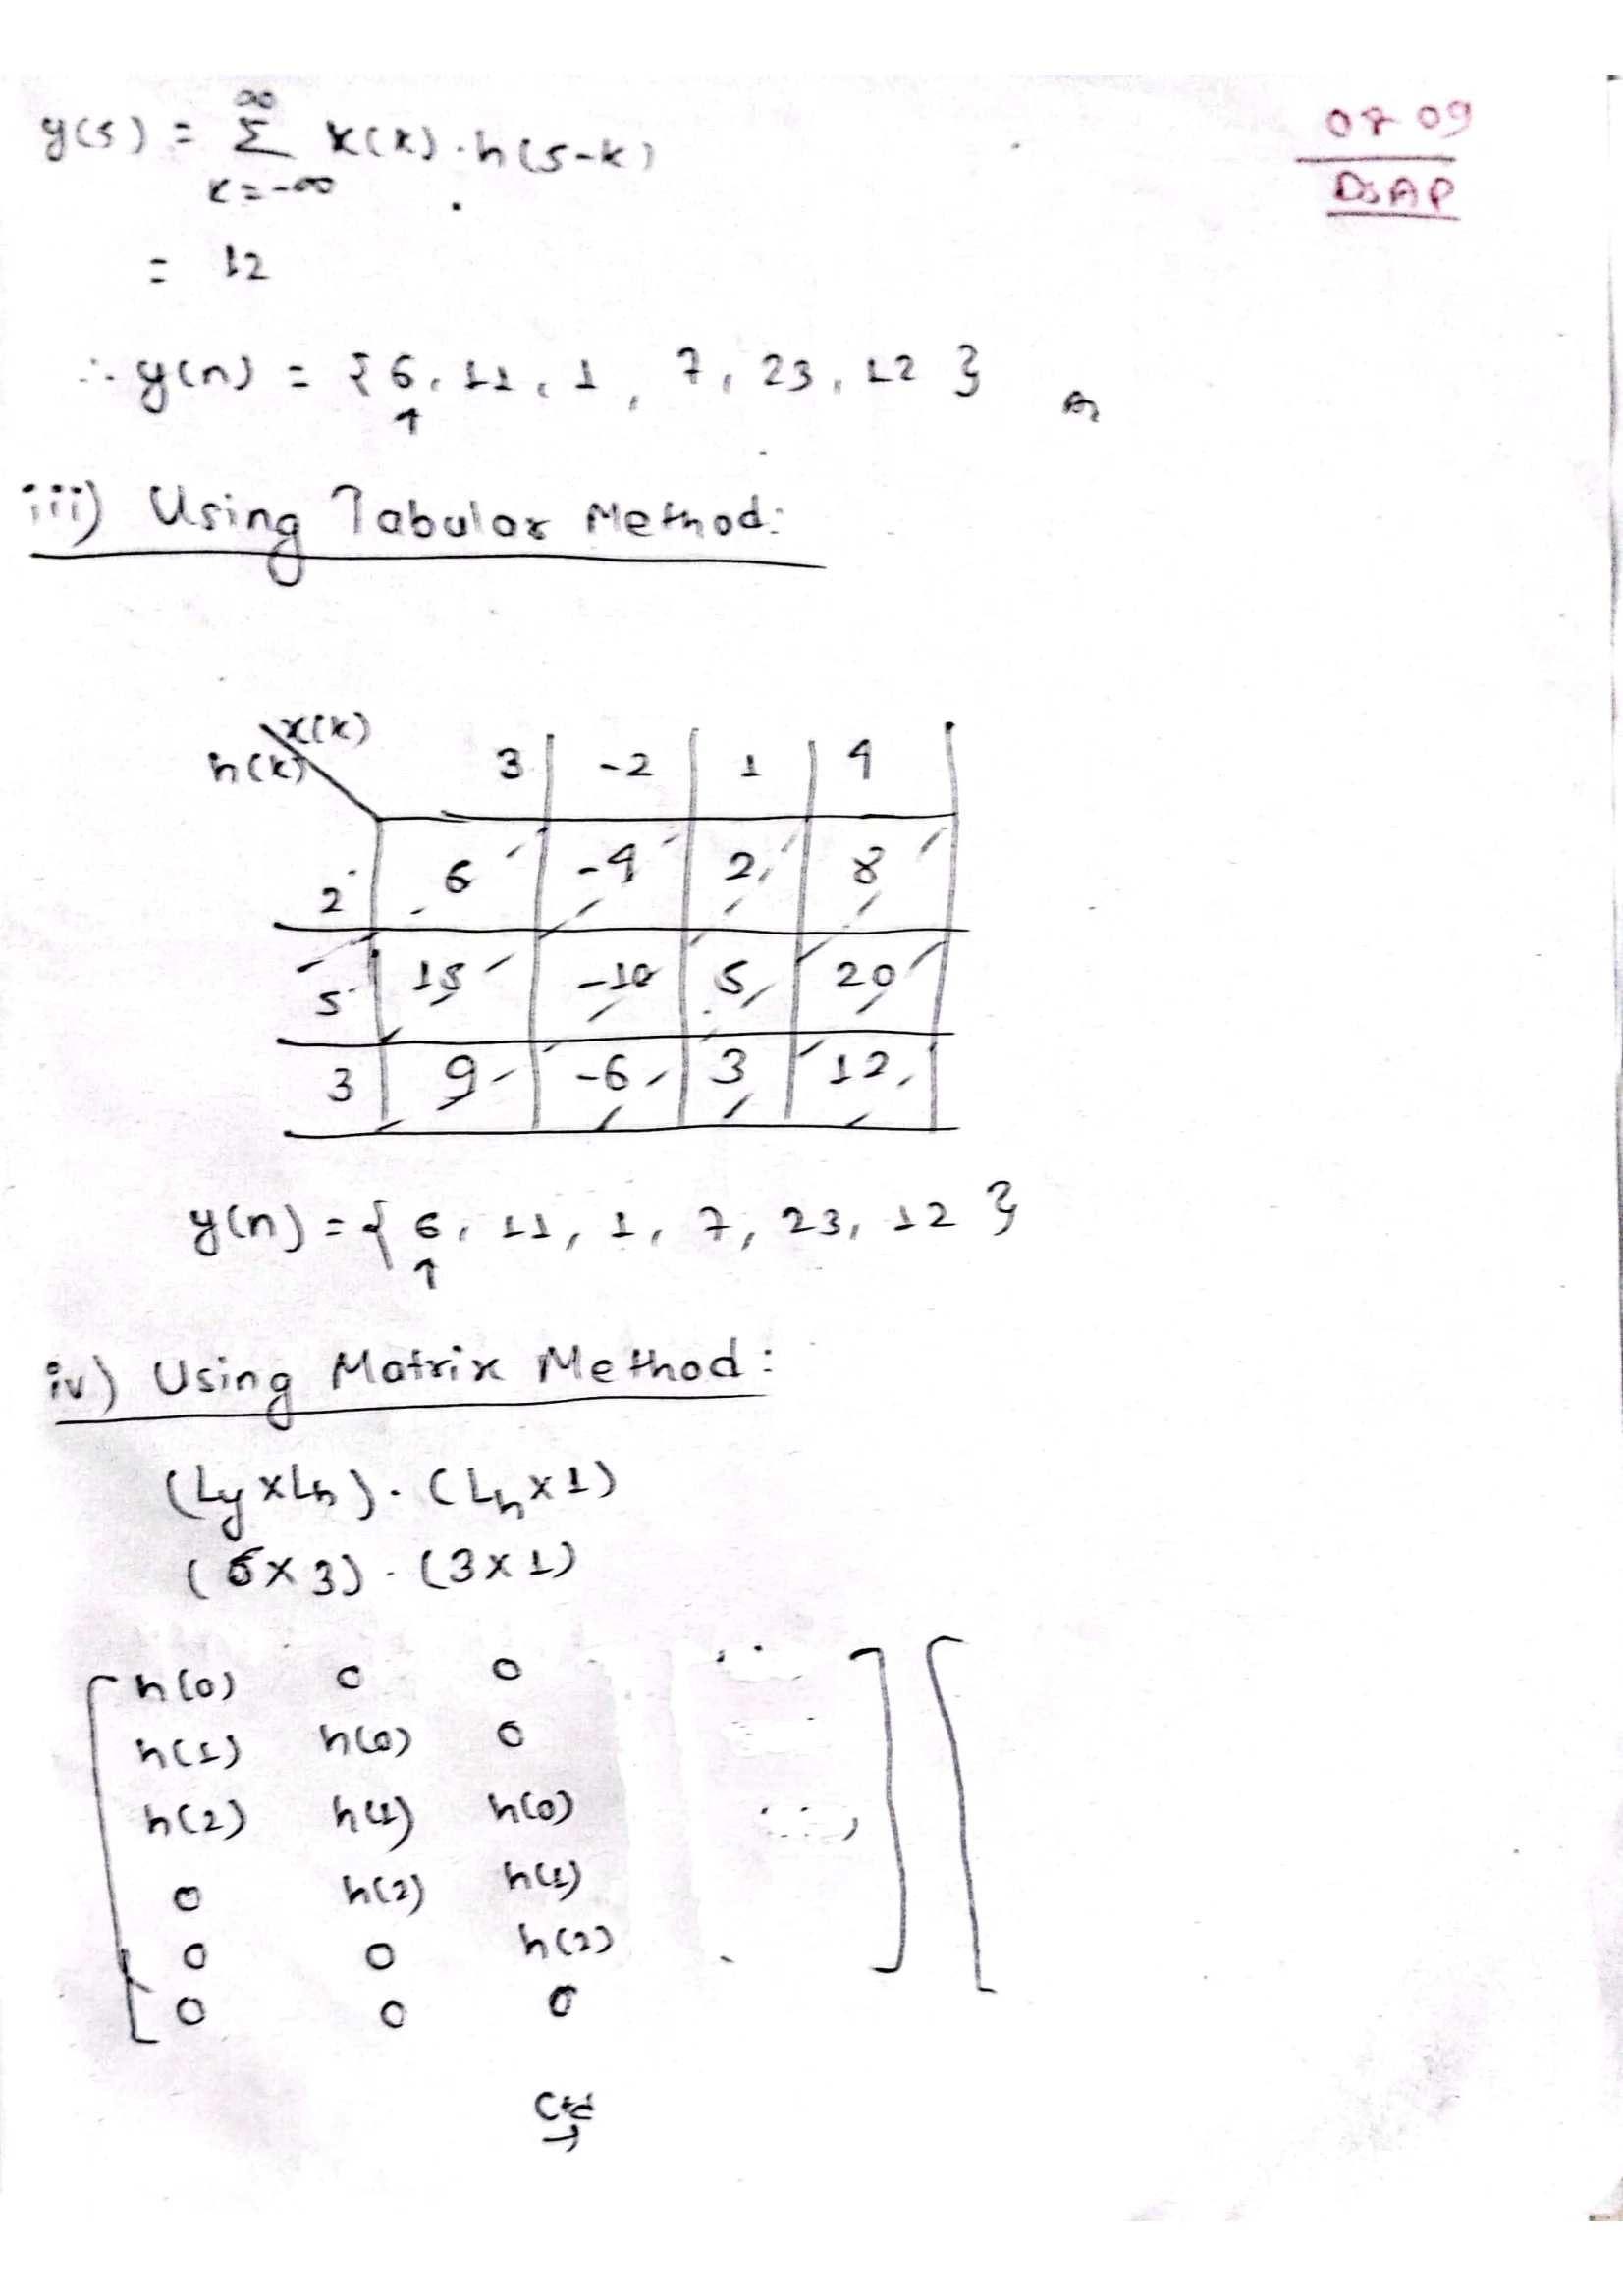 07 09
DSAP
y(5) = ∞ Σ k=-∞ x(k).h(5-k)
= 12
∴ y(n) = {6, 11, 1, 7, 23, 12}
↑
iii) Using Tabular Method:
x(k)
h(k) 3 -2 1 4
2 6 -4 2 8
5 15 -10 5 20
3 9 -6 3 12
y(n) = {6, 11, 1, 7, 23, 12}
↑
iv) Using Matrix Method:
(Ly×Lh).(Lh×1)
(6×3).(3×1)
h(0) 0 0
h(1) h(0) 0
h(2) h(1) h(0)
0 h(2) h(1)
0 0 h(2)
0 0 0